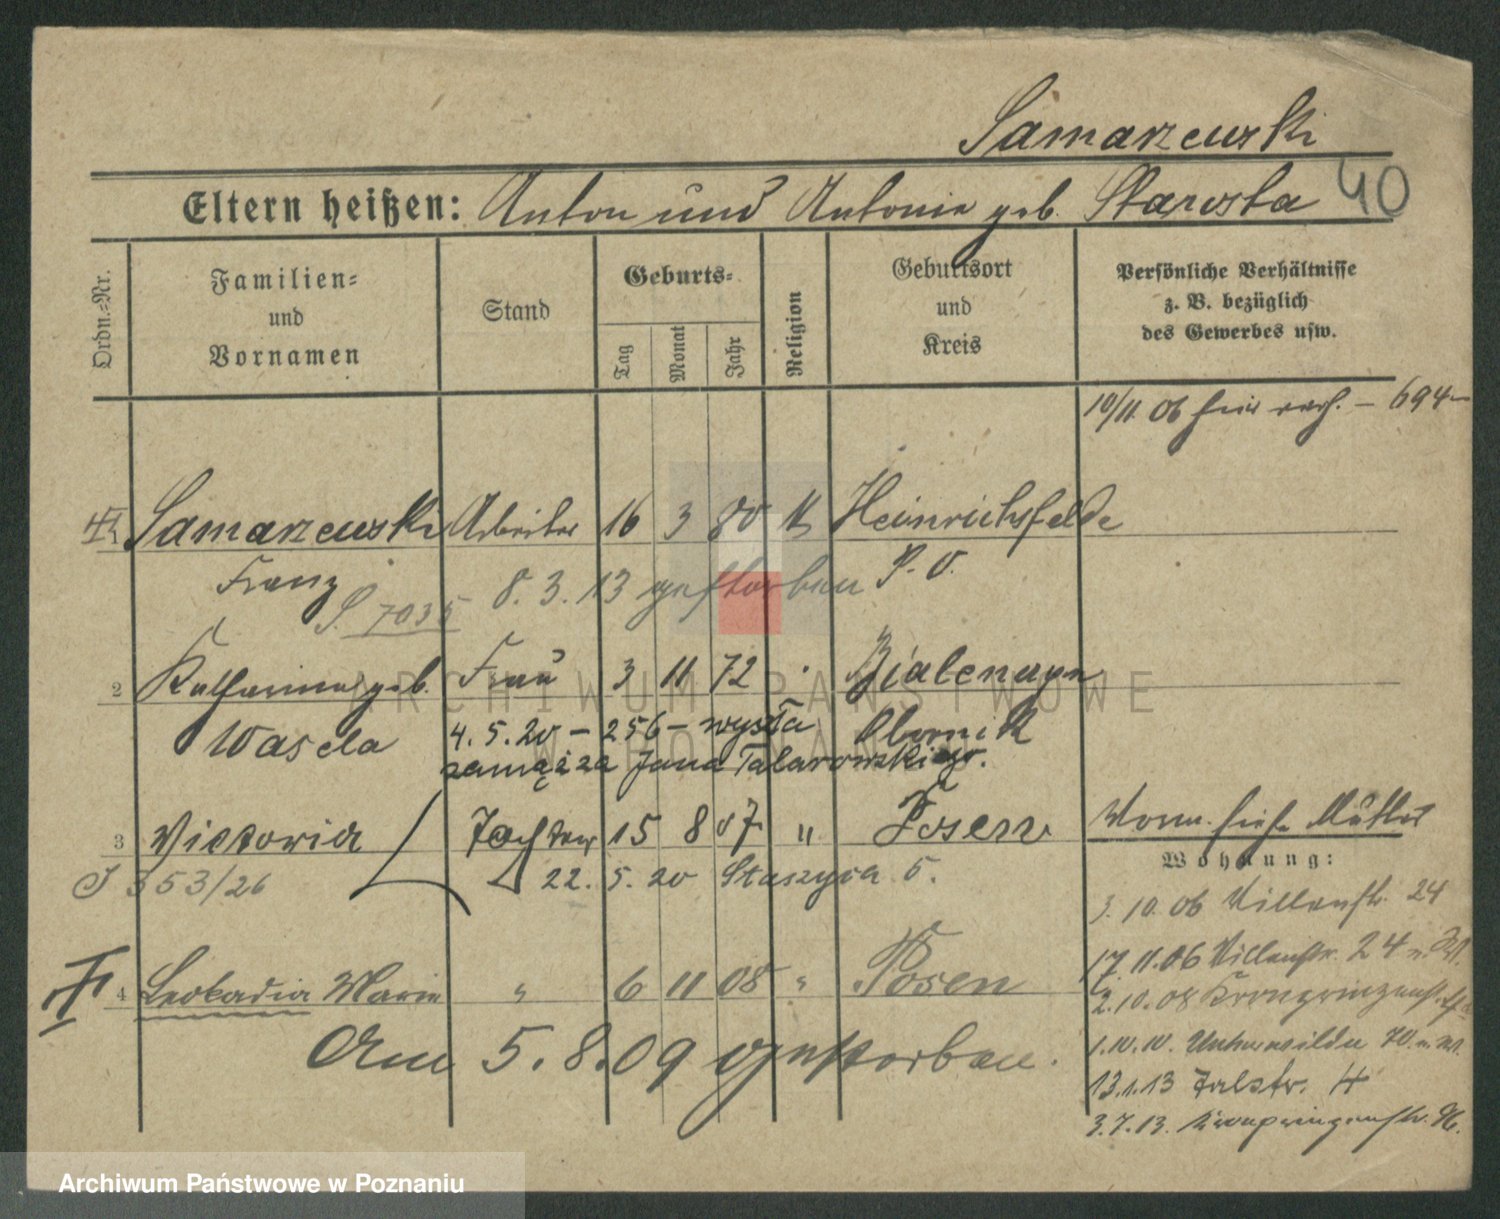 Samarzewski
Eltern heißen: Anton und Antonie geb. Starosta 40
Ordn.=Nr.
Familien=
und
Vornamen
Stand
Geburts=
Tag
Monat
Jahr
Religion
Geburtsort
und
Kreis
Persönliche Verhältnisse
z. B. bezüglich
des Gewerbes usw.
10/11. 06 hier verh. – 694
1 Samarzewski Arbeiter 16 3 80 k Heinrichsfelde
Franz 8. 3. 13 gestorben P. O.
S. 7035
2 Katharina geb. Frau 3 11 72 Bialenzyn
Wasela 4. 5. 20 – 256 – wyszła Obornik
zamąż za Jana Talarowskiego.
3 Victoria Tochter 15 8 07 " Posen Vorm. siehe Mutter
J 353/26 22. 5. 20 Staszyca 5.
Wohnung:
3. 10. 06 Villenstr. 24
17. 11. 06 Villenstr. 24
4 Leokadia Marie " 6 11 08 " Posen
2. 10. 08 Kronprinzenstr.
Am 5. 8. 09 gestorben.
1. 10. 10. Unterwilda 70.
13. 1. 13 Talstr. 4
3. 7. 13. Kronprinzenstr. 96.
ARCHIWUM PAŃSTWOWE
W POZNANIU
Archiwum Państwowe w Poznaniu